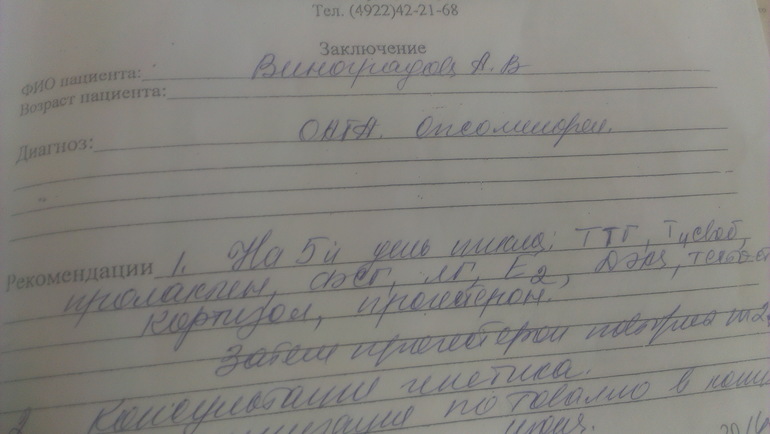 Тел. (4922)42-21-68
Заключение
ФИО пациента: Виноградова А.В
Возраст пациента:
Диагноз: ОАГА. Опсоменорея.
Рекомендации 1. На 5й день цикла: ТТГ, Т4своб,
пролактин, ФСГ, ЛГ, Е2, ДЭА,
кортизол, прогестерон.
Затем прогестерон
2 Консультация генетика.
по товалю в